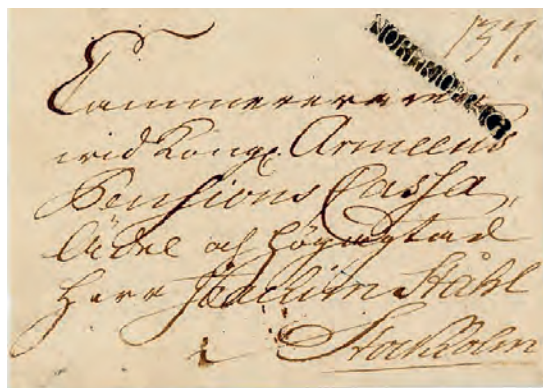 137.
NORRKÖPING
Cammereraren
wid Kongl. Armeens
Pensions Cassa,
Ädle och Högagtad
Herr Joachim Ståhl
i Stockholm